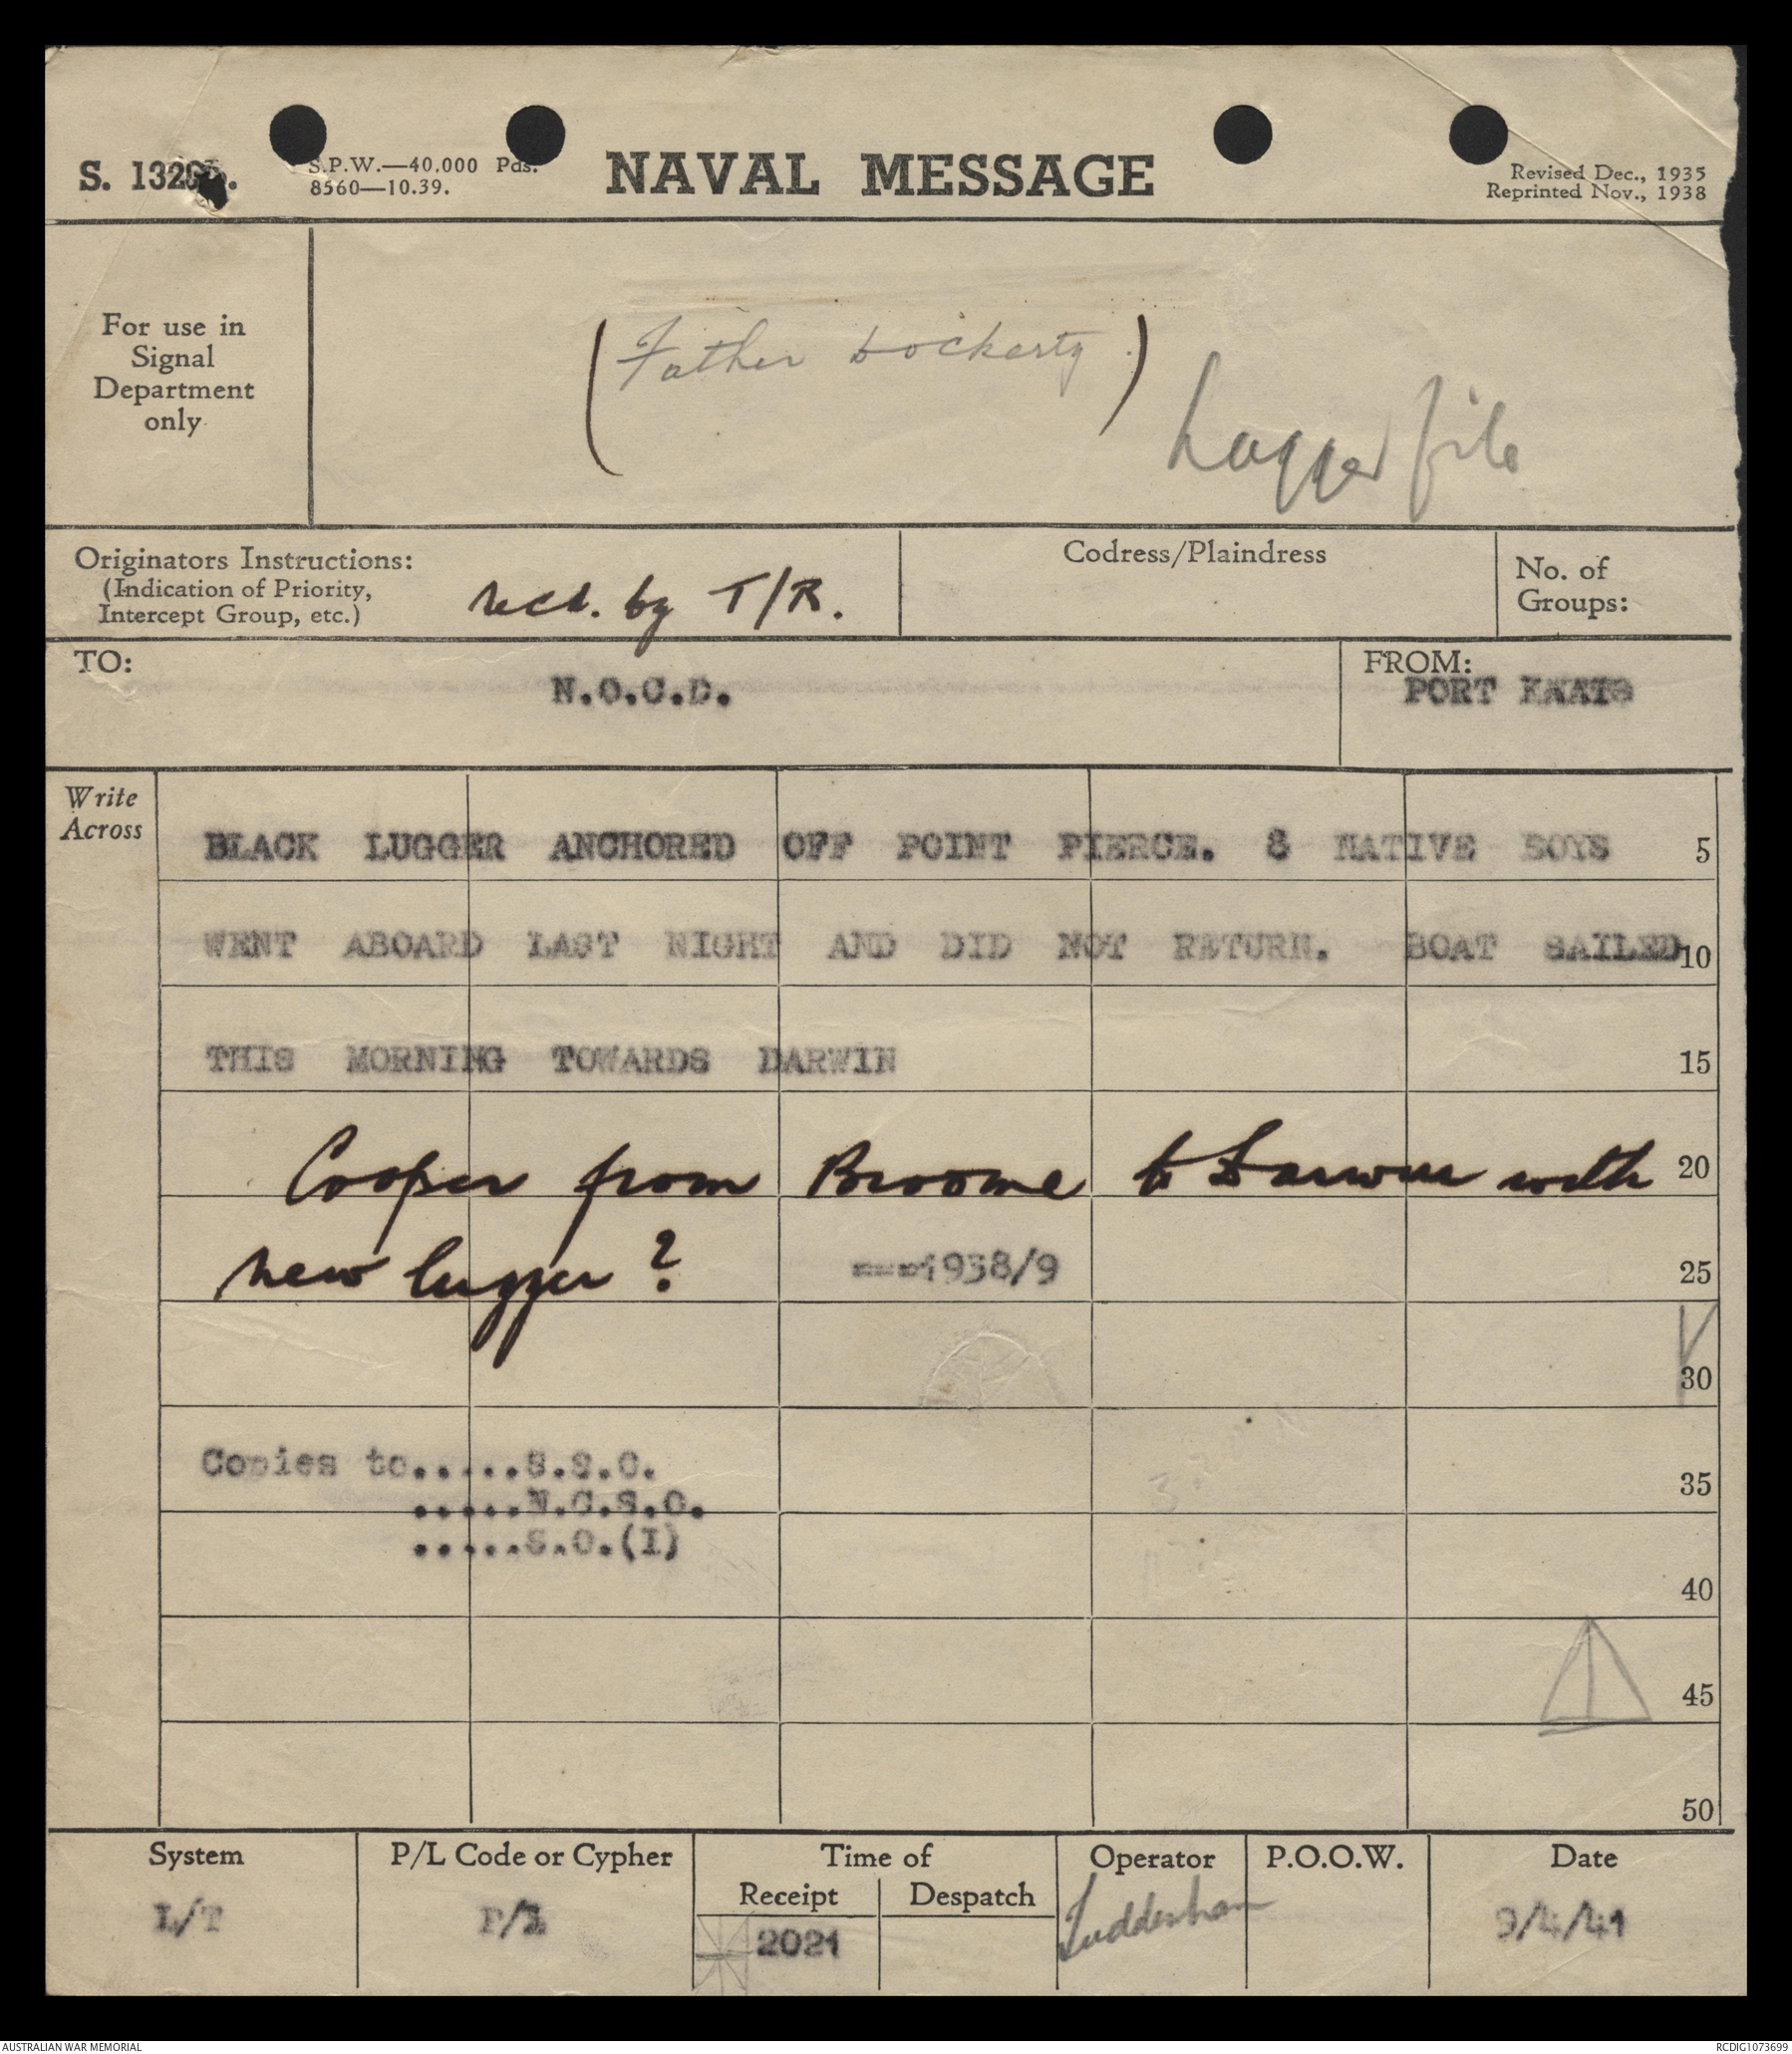 S. 1320
S.P.W.—40,000 Pds.
8560—10.39.
NAVAL MESSAGE
Revised Dec., 1935
Reprinted Nov., 1938
For use in
Signal
Department
only
(Father Dockerty.)
Lugger file
Originators Instructions:
(Indication of Priority,
Intercept Group, etc.)
recd. by T/R.
Codress/Plaindress
No. of
Groups:
TO:
N.O.C.D.
FROM:
PORT KEATS
Write
Across
BLACK LUGGER ANCHORED OFF POINT PIERCE. 8 NATIVE BOYS 5
WENT ABOARD LAST NIGHT AND DID NOT RETURN. BOAT SAILED 10
THIS MORNING TOWARDS DARWIN 15
Cooper from Broome to Darwin with 20
new lugger? ===1938/9 25
30
Copies to.....S.S.O. 35
.....N.C.S.O.
.....S.O.(I)
40
45
50
System
P/L Code or Cypher
Time of
Receipt
Despatch
Operator
P.O.O.W.
Date
L/T
P/L
2021
Luddenham
9/4/41
AUSTRALIAN WAR MEMORIAL
RCDIG1073699